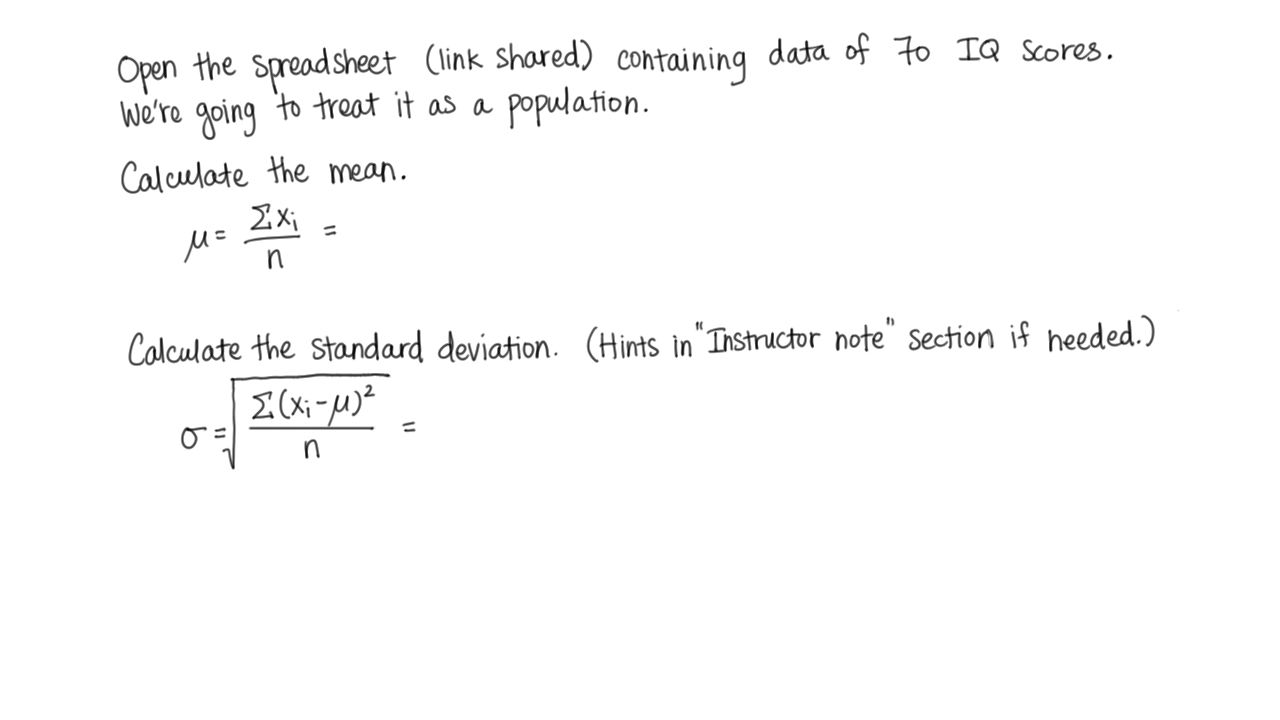 Open the spreadsheet (link shared) containing data of 70 IQ scores.
We're going to treat it as a population.
Calculate the mean.
μ = Σxi / n =
Calculate the standard deviation. (Hints in "Instructor note" section if needed.)
σ = √(Σ(xi-μ)² / n) =